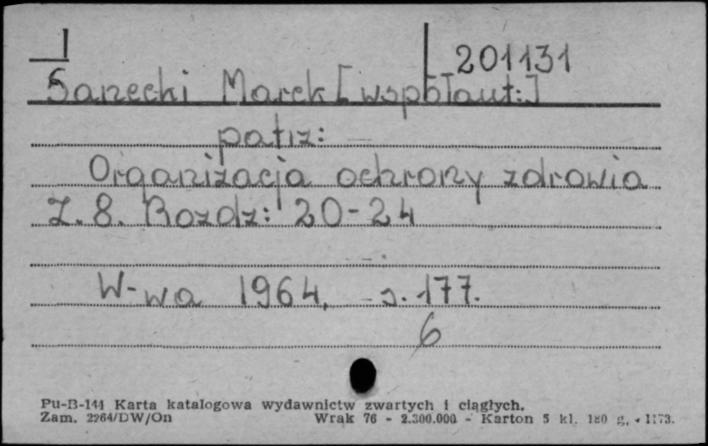 I
201131
Sanecki Marek [współaut:]
patrz:
Organizacja ochrony zdrowia
Z. 8. Rozdz: 20-24
W-wa 1964, s. 177.
6
Pu-B-144 Karta katalogowa wydawnictw zwartych i ciągłych.
Zam. 2264/DW/On Wrak 76 - 2.300.000 - Karton 5 kl. 180 g.